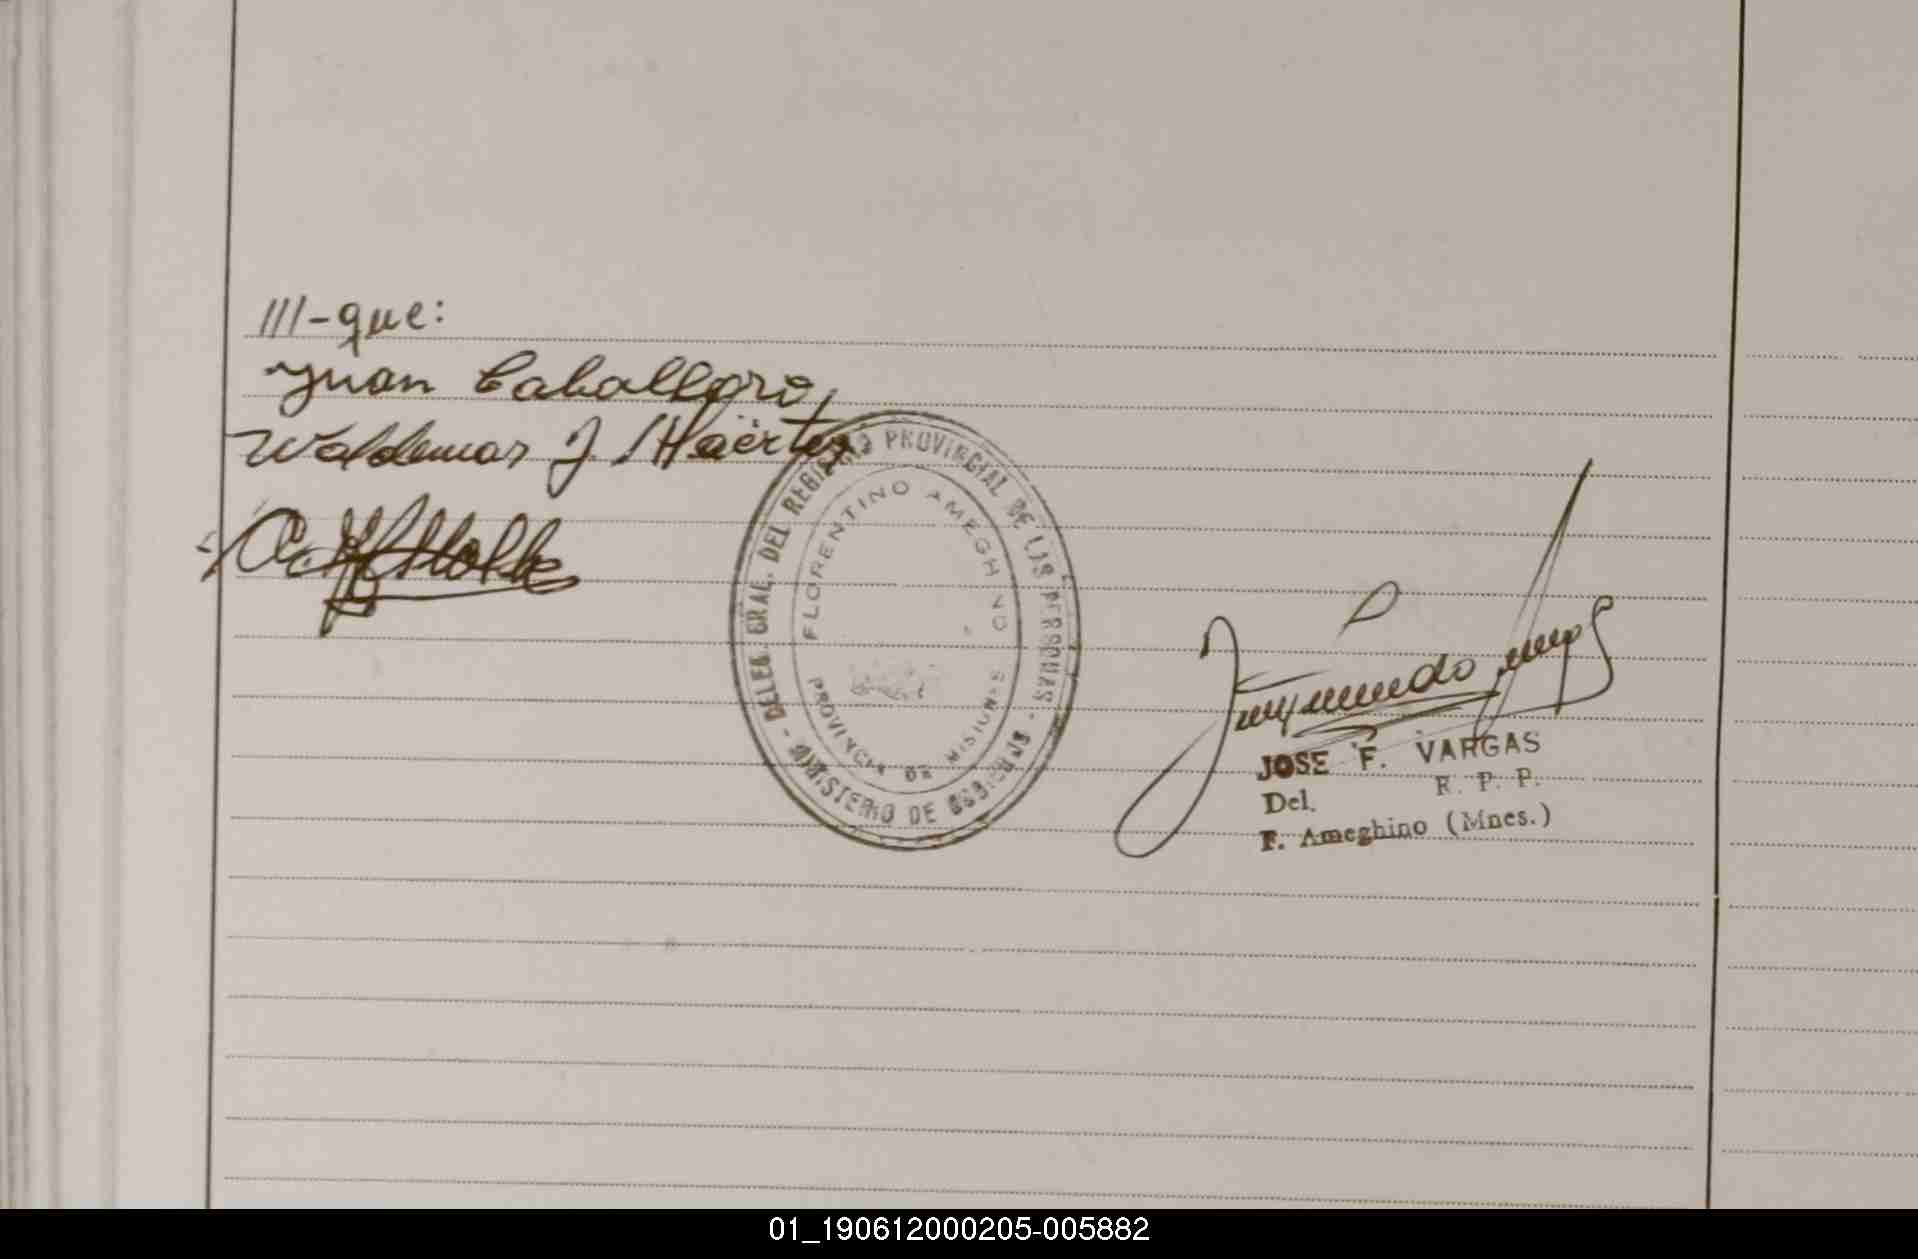 ///-que:
Juan Caballero,
Waldemar J. Haërter
DELEG. GRAL. DEL REGISTRO PROVINCIAL DE LAS PERSONAS -
MINISTERIO DE GOBIERNO -
FLORENTINO AMEGHINO
PROVINCIA DE MISIONES
JOSE F. VARGAS
Del. R. P. P.
F. Ameghino (Mnes.)
01_190612000205-005882